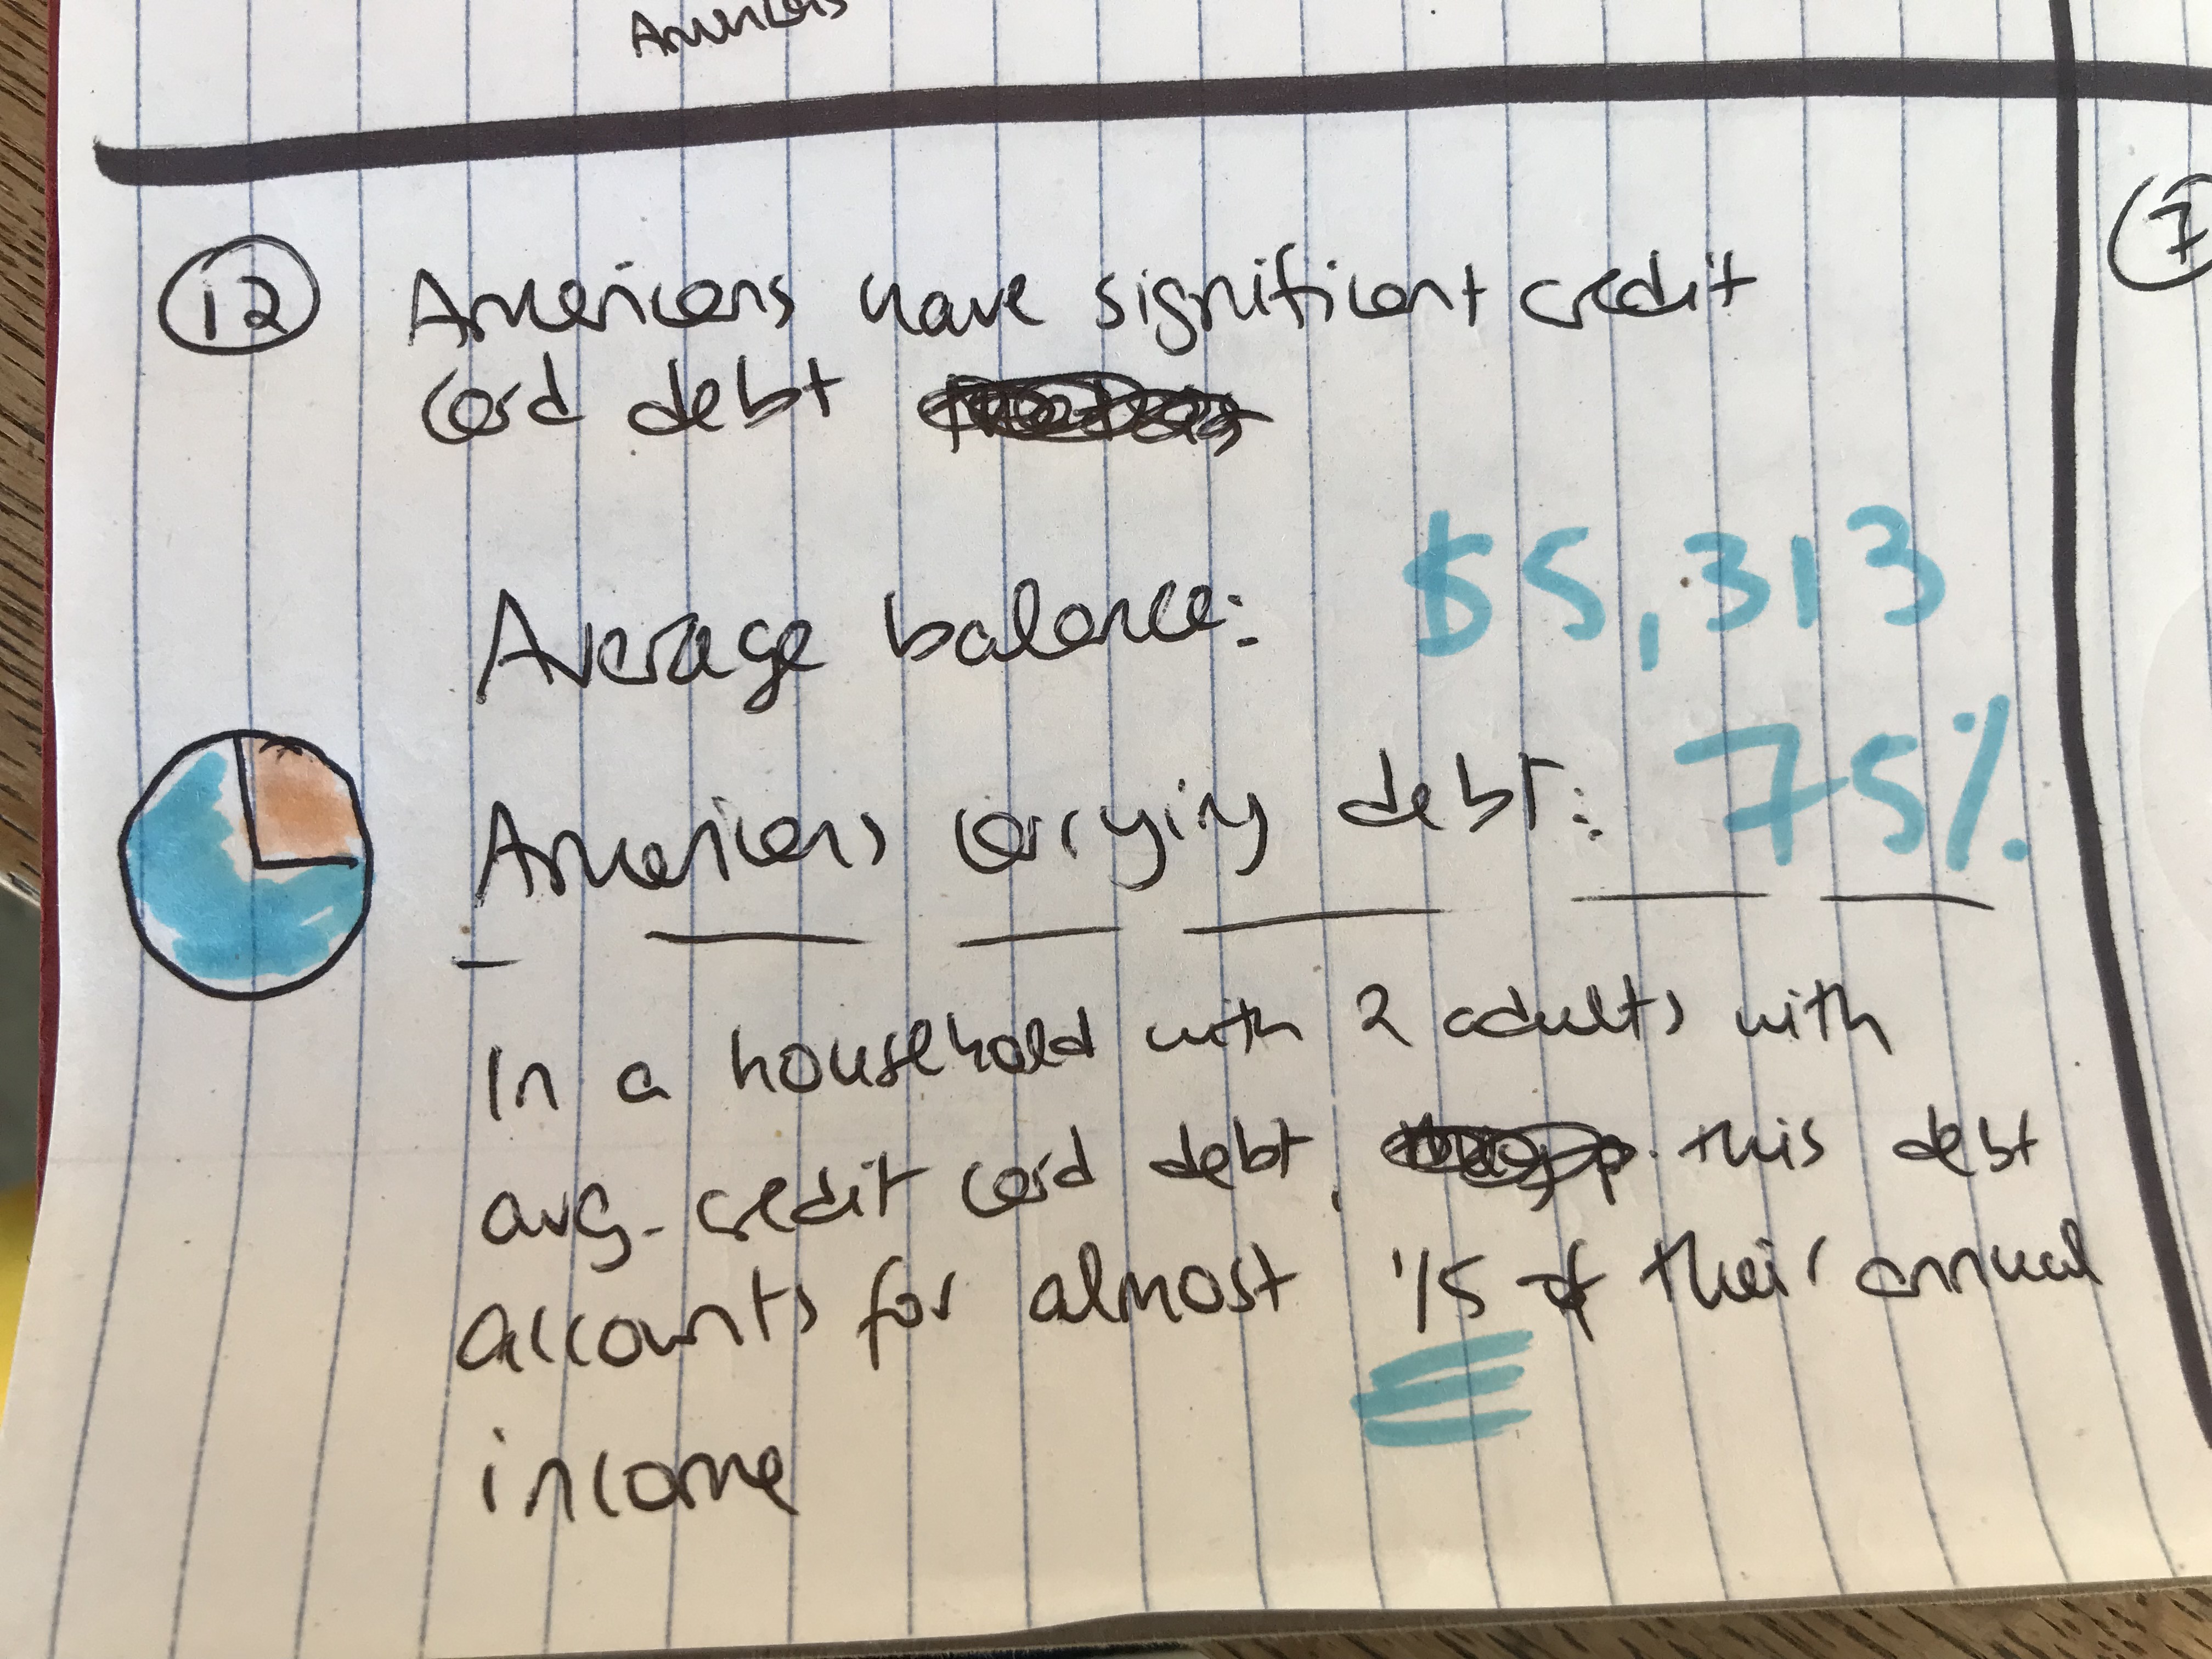 Americans
12 Americans have significant credit
card debt
Average balance: $5,313
Americans carrying debt: 75%
In a household with 2 adults with
avg. credit card debt, this debt
accounts for almost 1/5 of their annual
income
7